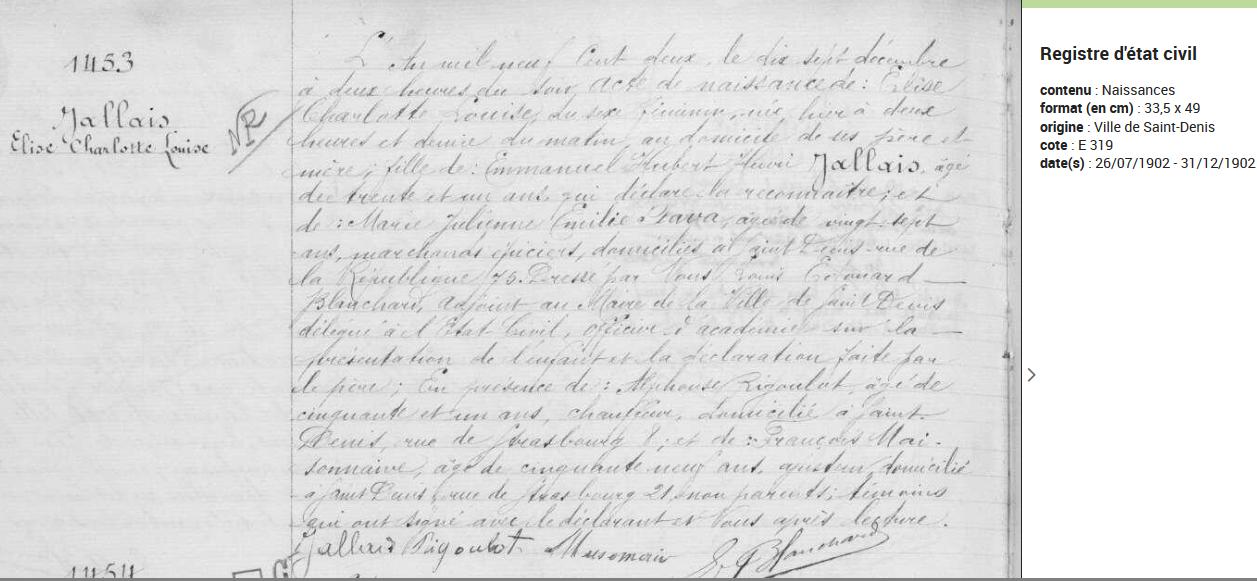 1453
Jallais
Elise Charlotte Louise
NR
L'An mil neuf cent deux, le dix sept décembre
à deux heures du soir, acte de naissance de : Elise
Charlotte Louise, du sexe féminin, née hier à deux
heures et demie du matin, au domicile de ses père et
mère, fille de : Emmanuel Hubert Henri Jallais, âgé
de trente et un ans, qui déclare la reconnaître ; et
de : Marie Julienne Emilie agée de vingt sept
ans, marchands épiciers, domiciliés à Saint Denis rue de
la République 75. Dressé par Nous Louis Edouard
Blanchard, adjoint au Maire de la Ville de Saint Denis
délégué à l'Etat Civil, officier d'académie sur la
présentation de l'enfant et la déclaration faite par
le père ; En présence de : Alphonse Rigoulot, âgé de
cinquante et un ans, chauffeur, domicilié à Saint-
Denis, rue de Strasbourg ; et de : François Mai-
sonnaive, âgé de cinquante neuf ans, ajusteur, domicilié
à Saint Denis, rue de Strasbourg 21, non parents ; témoins
qui ont signé avec le déclarant et Nous après lecture.
Jallais Rigoulot Blanchard
1454
Registre d'état civil
contenu : Naissances
format (en cm) : 33,5 x 49
origine : Ville de Saint-Denis
cote : E 319
date(s) : 26/07/1902 - 31/12/1902